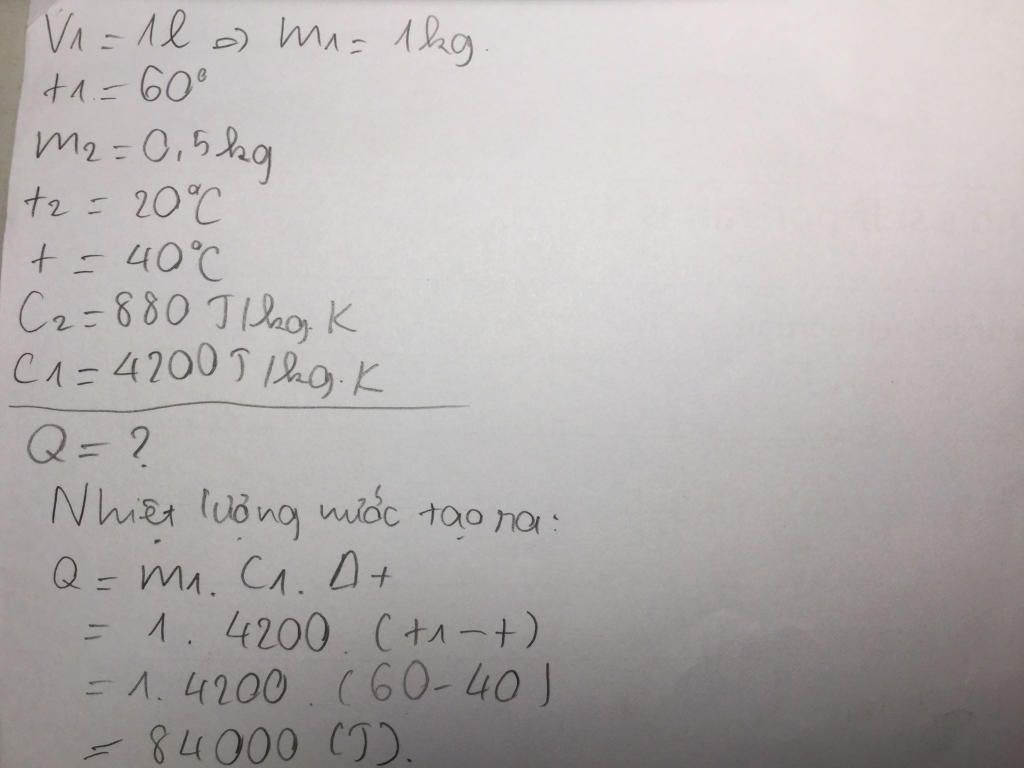 V1 = 1l => m1 = 1kg.
t1 = 60°
m2 = 0,5kg
t2 = 20°C
t = 40°C
C2 = 880 J/kg.K
C1 = 4200 J/kg.K
Q = ?
Nhiệt lượng nước tạo ra:
Q = m1. C1. Δt
= 1. 4200. (t1 - t)
= 1. 4200. (60 - 40)
= 84000 (J).